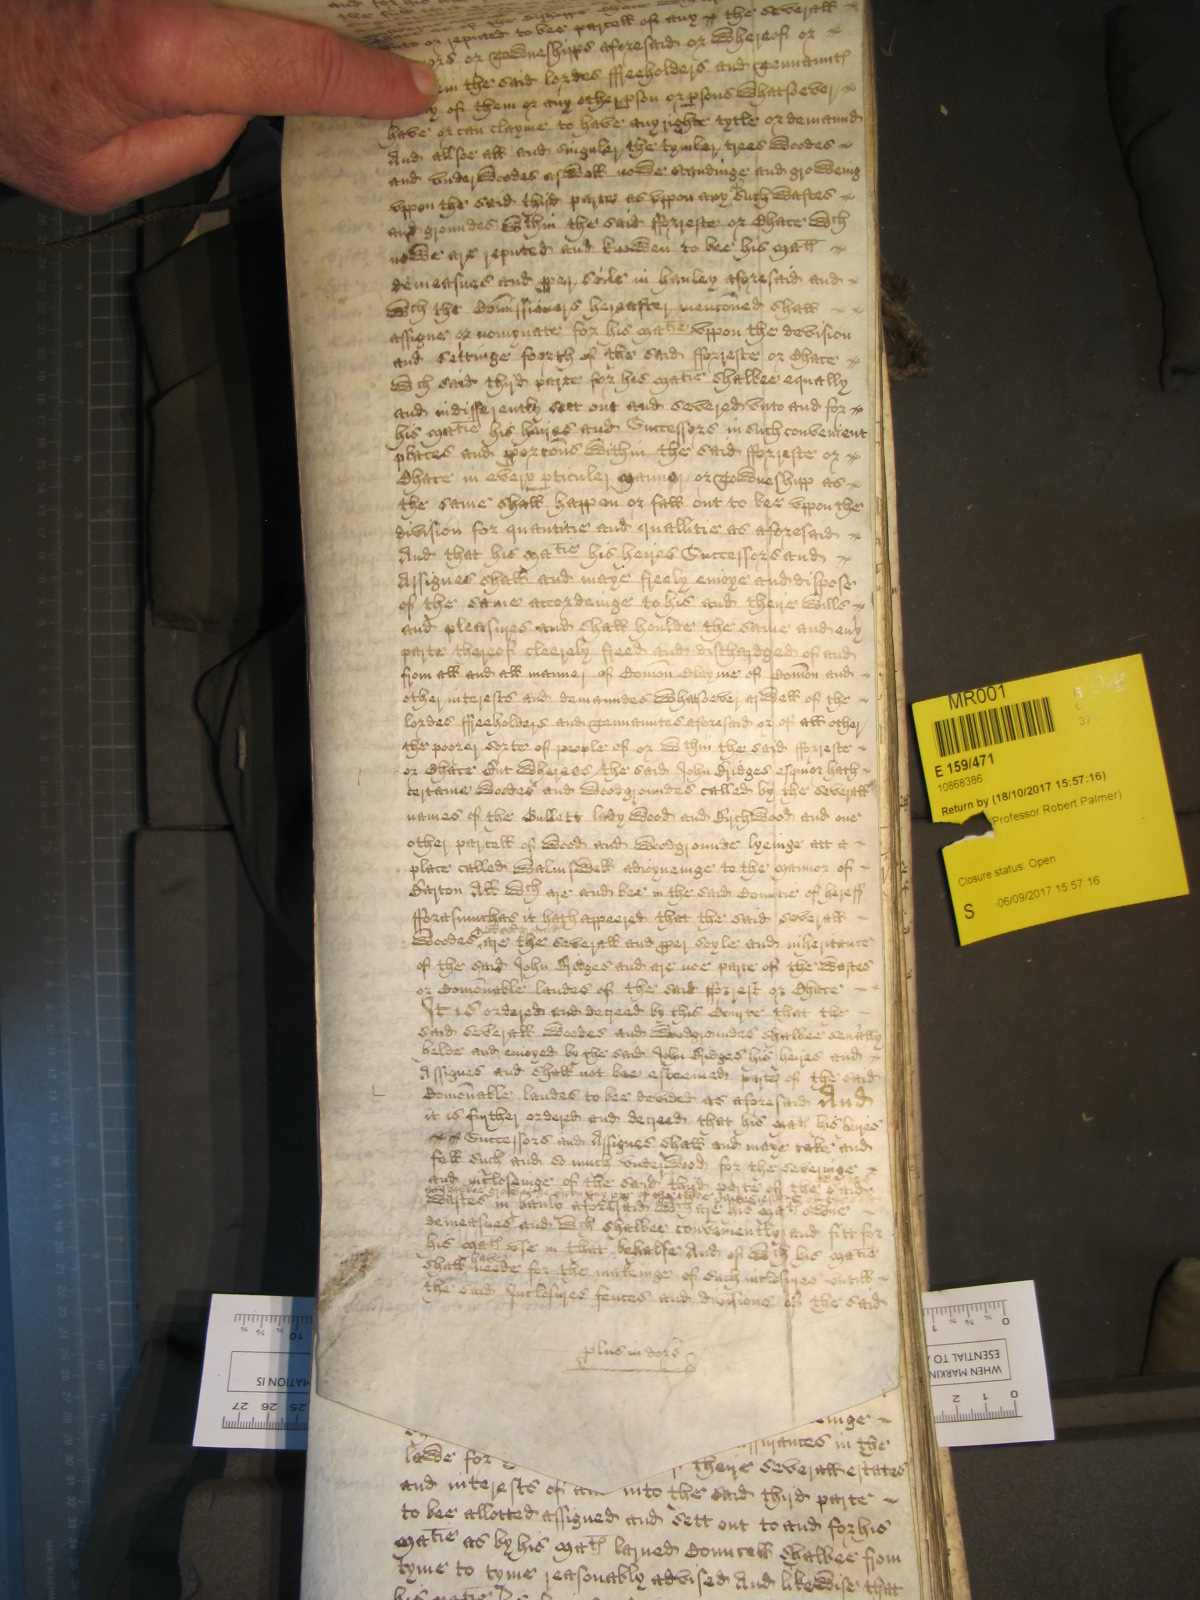 and for his
the said
unto or reputed to bee parcell of any the severall
or Towneships aforesaid or whereof or
in the said lordes ffreeholders and Tennaunts
of them or any other pson or psons whatsoever
have or can clayme to have any righte tytle or demaund
And allsoe all and singuler the tymber trees woodes
and underwoodes aswell nowe standinge and groweing
uppon the said third parte as uppon any such wastes
and groundes wthin the said fforreste or Chace wch
nowe are reputed and knowen to bee his matts
demeasnes and pper soile in hanley aforesaid and
wch the Comissioners hereafter menconed shall
assigne or nomynate for his matie uppon the devision
and settinge foorth of the said fforreste or Chace
wch said third parte for his matie shalbee equally
and indifferently sett out and severed unto and for
his matie his heires and Successors in such convenient
places and pporcons within the said fforreste or
Chace in every pticuler mannor or Towneshipp as
the same shall happen or fall out to bee uppon the
division for quantitie and quallitie as aforesaid
And that his matie his heires Successors and
Assignes shall and maye freely enioye and dispose
of the same accordeinge to his and theire wills
and pleasures and shall houlde the same and evy
parte thereof cleerely freed and dischardged of and
from all and all manner of Comon Clayme of Comon and
other interests and demaundes whatsoever aswell of the
lordes ffreeholders and Tennauntes aforesaid or of all other
the poorer sorte of people of or wthin the said fforreste
or Chace But whereas the said John Bridges esquior hath
certaine woodes and woodgroundes called by the severall
names of the Gullett lady wood and Birchwood and one
other parcell of wood and woodgrounde lyeinge att a
place called walmswell adioyneinge to the mannor of
Barton All wch are and bee in the said Countie of hereff
fforasmuchas it hath appeered that the said severall
woodes are the severall and pper soyle and inheritance
of the said John Bridges and are noe parte of the wastes
or Comonable landes of the said fforrest or Chace
It is ordered and decreed by this Courte that the
said severall woodes and woodgroundes shalbee sevally
helde and enioyed by the said John Bridges his heires and
Assignes and shall not bee esteemed parte of the said
Comonable landes to bee devided as aforesaid And
it is further ordered and decreed that his matie his heires
Successors and Assignes shall and maye take and
fell such and so much underwood for the severinge
and inclosinge of the said third parte of the
wastes in hanly aforesaid wch are his matts owne
demeasnes and wch shalbee conveniently and fitt for
his matts use in that behalfe And of wch his matie
shall have neede for the makeinge of such inclosures untill
the said Inclosures fences and divisions of the said
plus in dors
lawe for
in the
theire severall estates
and interests of into the said third parte
to bee allotted assigned and sett out to and for his
matie as by his matts larned Councell shalbee from
tyme to tyme reasonably advised And likewise that
his matie
MR001
E 159/471
10868386
Return by (18/10/2017 15:57:16)
Professor Robert Palmer)
Closure status: Open
S
06/09/2017 15:57:16
WHEN MARKIN
ESENTIAL TO
MATION IS
0 1 2
25 26 27